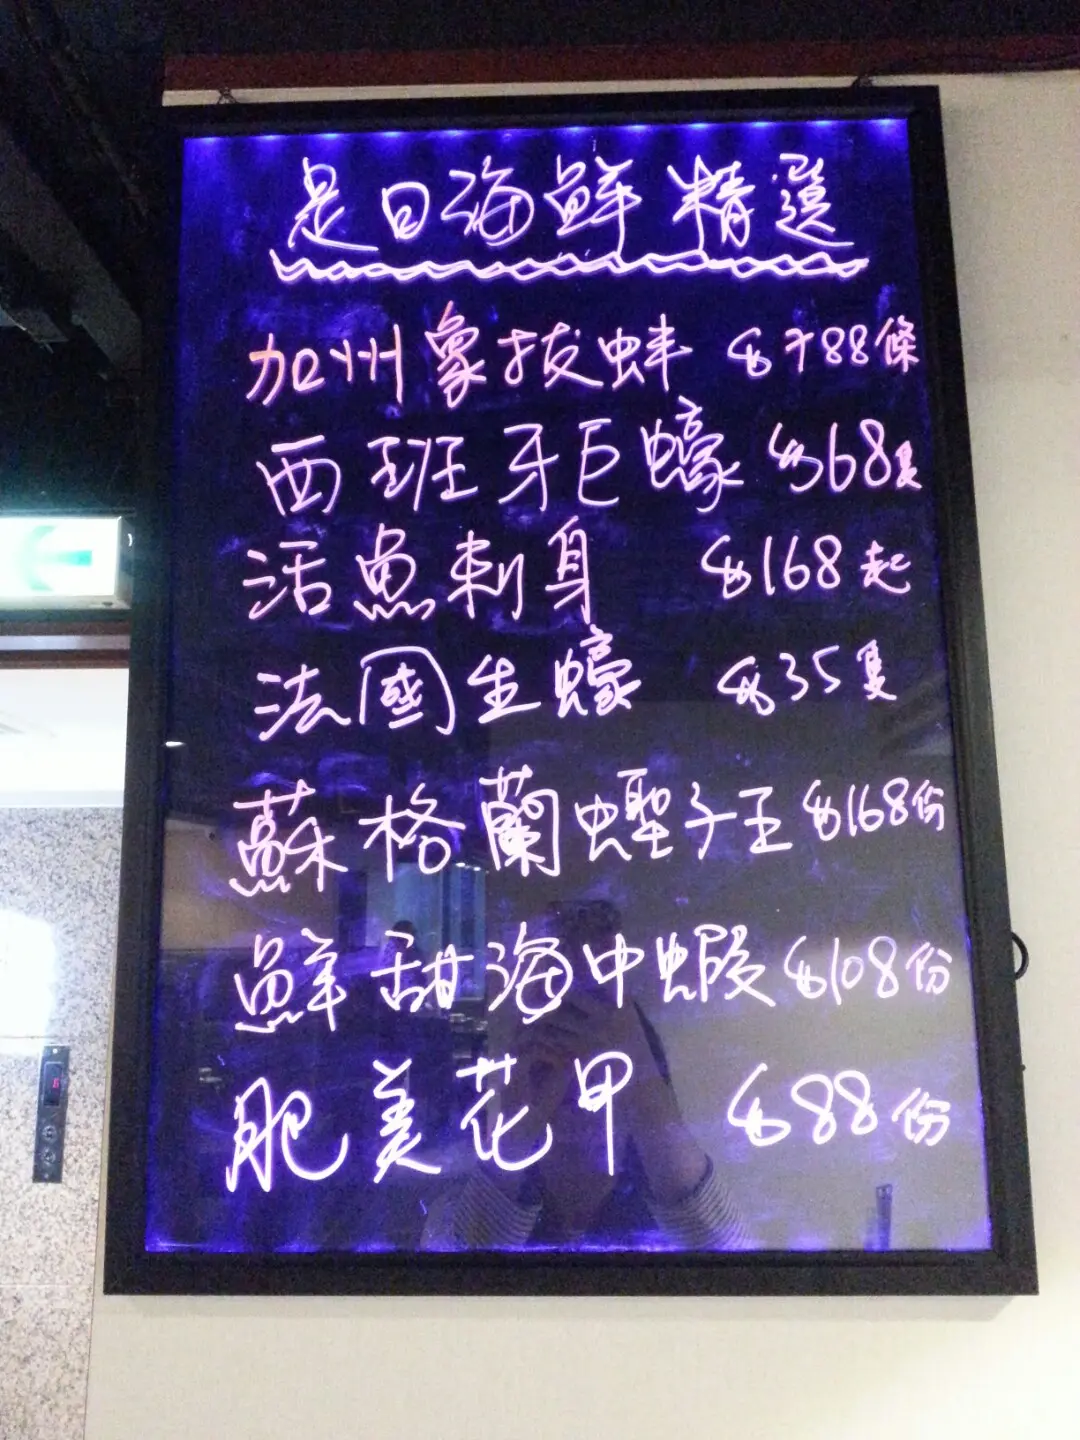 是日海鮮精選
加州象拔蚌 $788條
西班牙巨蠔 $68隻
活魚刺身 $168起
法國生蠔 $35隻
蘇格蘭蟶子王 $168份
鮮甜海中蝦 $108份
肥美花甲 $88份